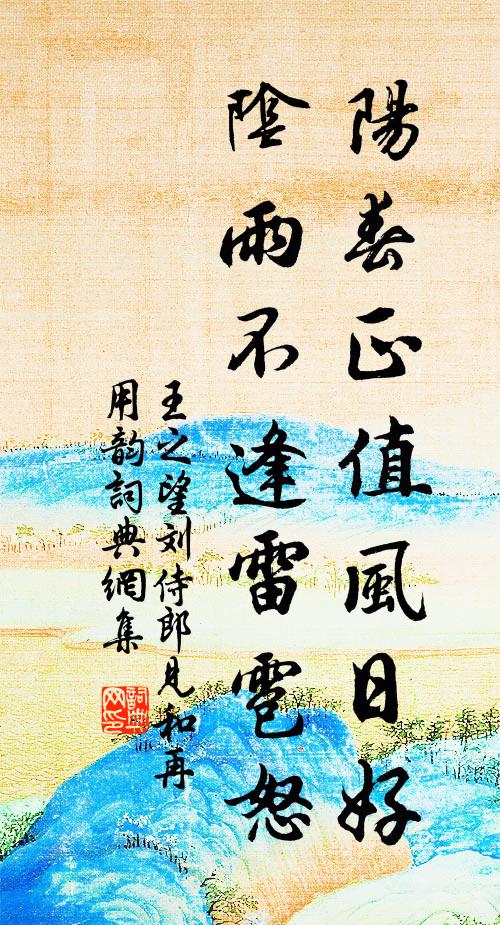 陽春正值風日好
陰雨不逢雷雹怒
王之望刘侍郎見和再
用韵詞典網集